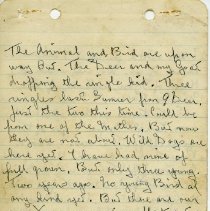 The Animal and Bird are upon
way But. The Deer and my Goat
dropping the single kid. Three
singles last Summer from 9 Deer,
just the two this time. Could be
from one of the Mother. But now
they are now alone. Wild Dogs are
here yet. I have had none of
full grown. But only three young.
Two years ago. No young Bird of
any kind yet. But there are our